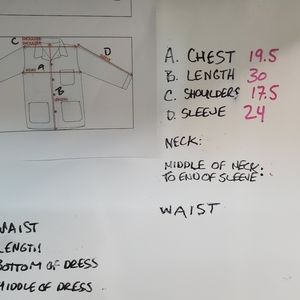 C SHOULDER
D
A
B
A. CHEST 19.5
B. LENGTH 30
C. SHOULDERS 17.5
D. SLEEVE 24
NECK:
MIDDLE OF NECK:
TO END OF SLEEVE:
WAIST
WAIST
LENGTH
BOTTOM OF DRESS
MIDDLE OF DRESS